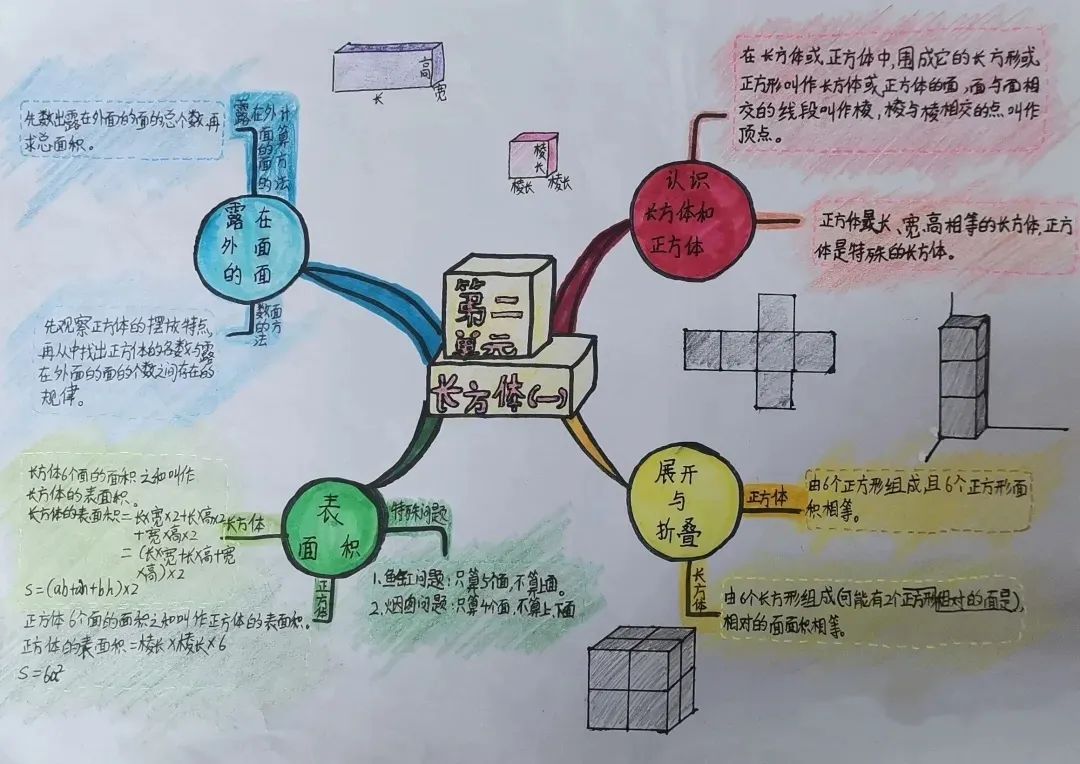 第二
单元
长方体(一)
认识
长方体和
正方体
在长方体或正方体中,围成它的长方形或
正方形叫作长方体或正方体的面,面与面相
交的线段叫作棱,棱与棱相交的点叫作
顶点。
正方体是长、宽、高相等的长方体,正方
体是特殊的长方体。
展开
与
折叠
正方体
由6个正方形组成,且6个正方形面
积相等。
长方体
由6个长方形组成(可能有2个正方形相对的面是),
相对的面面积相等。
表
面积
长方体
长方体6个面的面积之和叫作
长方体的表面积。
长方体的表面积=长×宽×2+长×高×2
+宽×高×2
=(长×宽+长×高+宽
×高)×2
S=(ab+ah+bh)×2
正方体
正方体6个面的面积之和叫作正方体的表面积。
正方体的表面积=棱长×棱长×6
S=6a²
特殊问题
1.鱼缸问题:只算5个面,不算上面。
2.烟囱问题:只算4个面,不算上、下面
露在
外面
的面
露在外面的面的计算方法
先数出露在外面的面的总个数,再
求总面积。
数面的方法
先观察正方体的摆放特点,
再从中找出正方体的各数与露
在外面的面的个数之间存在的
规律。
高
长
宽
棱长
棱长
棱长